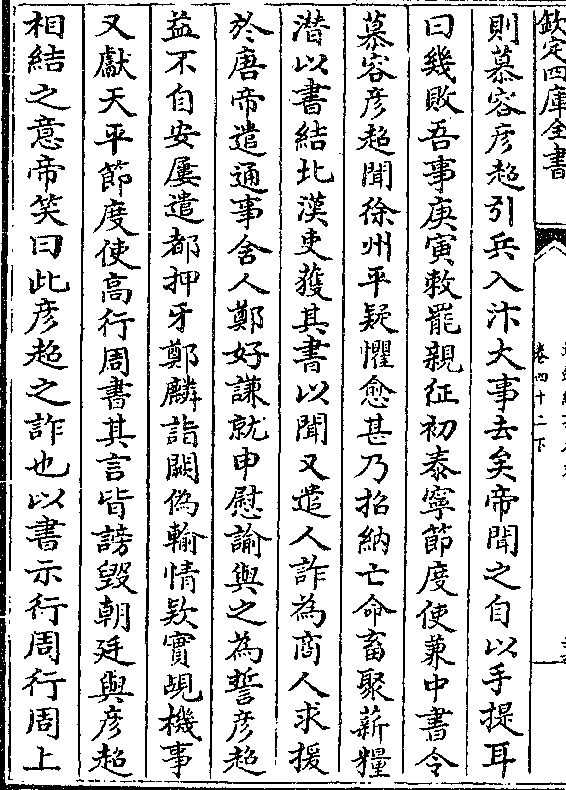 欽定四庫全書
卷四十二下
則慕容彦超引兵入汴大事去矣帝聞之自以手提耳
曰幾敗吾事庚寅敕罷親征初泰寧節度使兼中書令
慕容彦超聞徐州平疑懼愈甚乃招納亡命畜聚薪糧
潜以書結北漢吏獲其書以聞又遣人詐為商人求援
於唐帝遣通事舍人鄭好謙就申慰諭與之為誓彦超
益不自安屢遣都押牙鄭麟詣闕偽輸情欵實覘機事
又獻天平節度使高行周書其言皆謗毀朝廷與彦超
相結之意帝笑曰此彦超之詐也以書示行周行周上